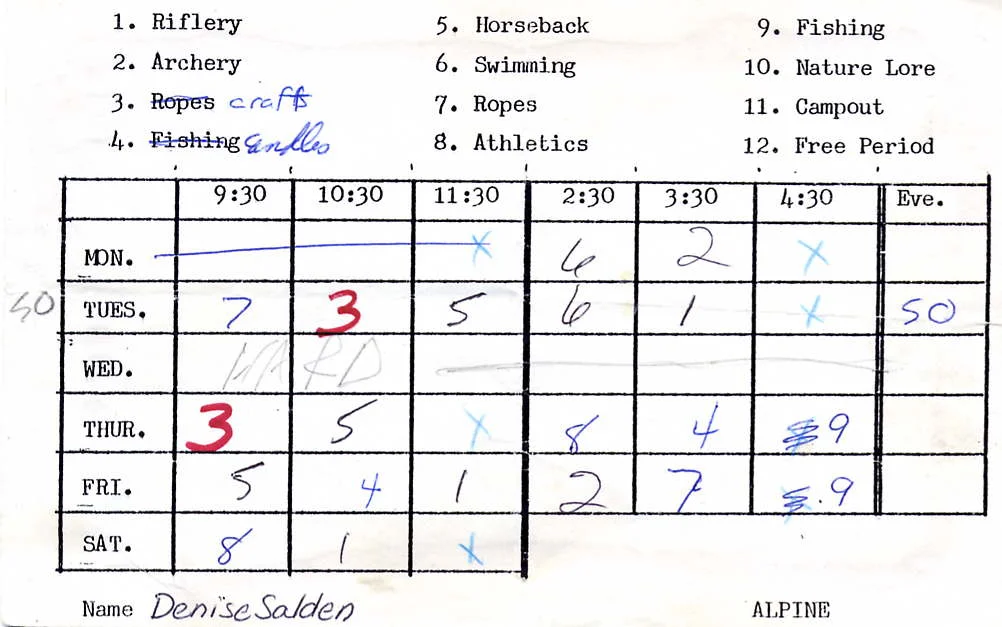 1. Riflery 5. Horseback 9. Fishing
2. Archery 6. Swimming 10. Nature Lore
3. Ropes crafts 7. Ropes 11. Campout
4. Fishing Candles 8. Athletics 12. Free Period
9:30 10:30 11:30 2:30 3:30 4:30 Eve.
MON. X 6 2 X
50 TUES. 7 3 5 6 1 X 50
WED. HARD
THUR. 3 5 X 8 4 9
FRI. 5 4 1 2 7 9
SAT. 8 1 X
Name Denise Salden ALPINE